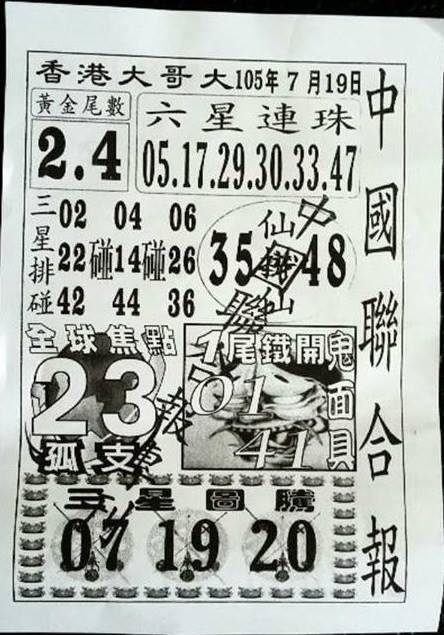 香港大哥大105年7月19日
中國聯合報
黃金尾數
2.4
六星連珠
05.17.29.30.33.47
三星排碰
02 04 06
22碰14碰26
42 44 36
仙
35 48
仙
中國聯合報
全球焦點
23
孤支
1尾鐵開
01
41
鬼面具
三星圖騰
07 19 20